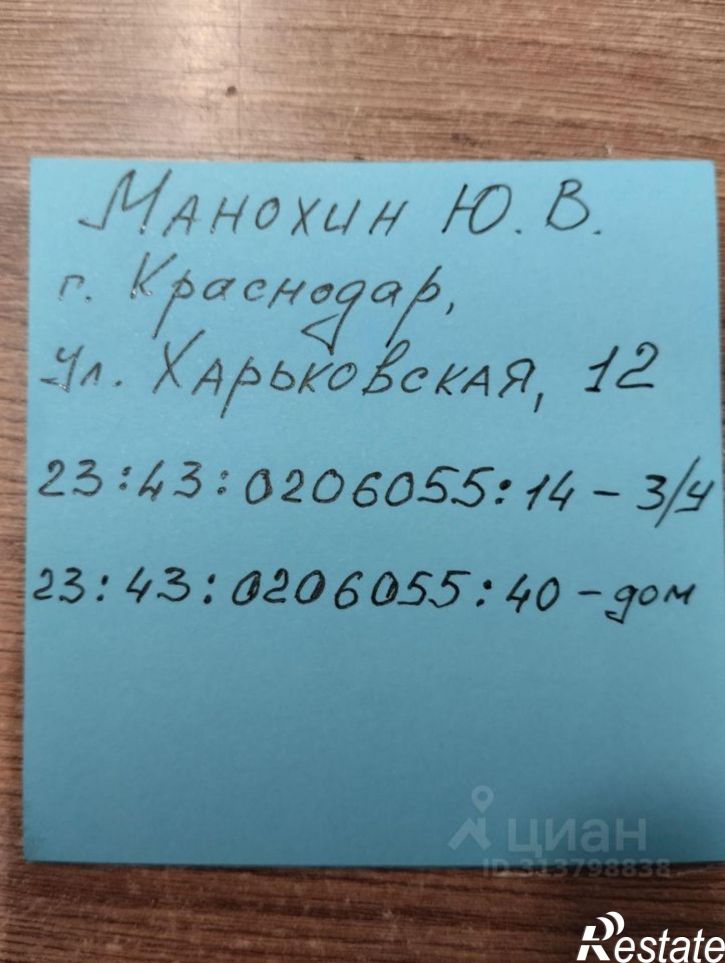 Манохин Ю. В.
г. Краснодар,
ул. Харьковская, 12
23:43:0206055:14 - з/у
23:43:0206055:40 - дом
циан
ID 313798838
Restate